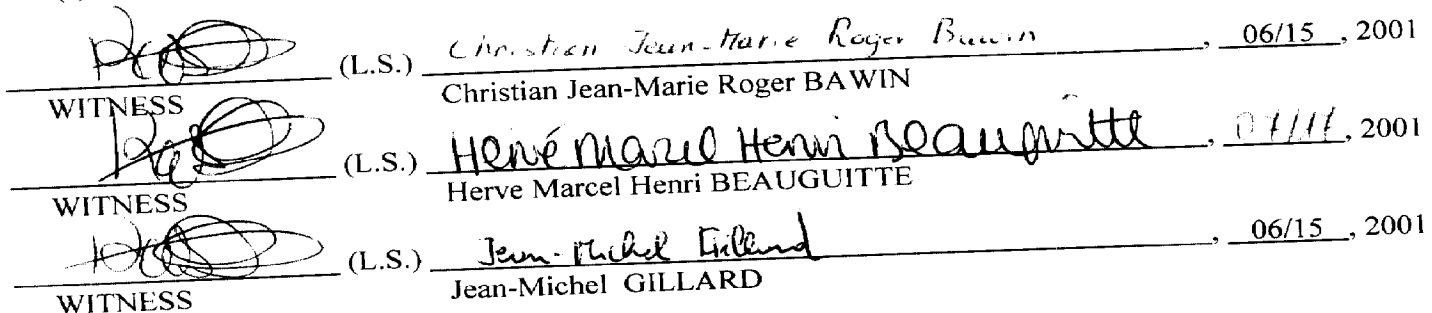 (L.S.) Christian Jean-Marie Roger Bawin, 06/15, 2001
WITNESS Christian Jean-Marie Roger BAWIN
(L.S.) Hervé Marcel Henri Beauguitte, 2001
WITNESS Herve Marcel Henri BEAUGUITTE
(L.S.) Jean-Michel Gillard, 06/15, 2001
WITNESS Jean-Michel GILLARD